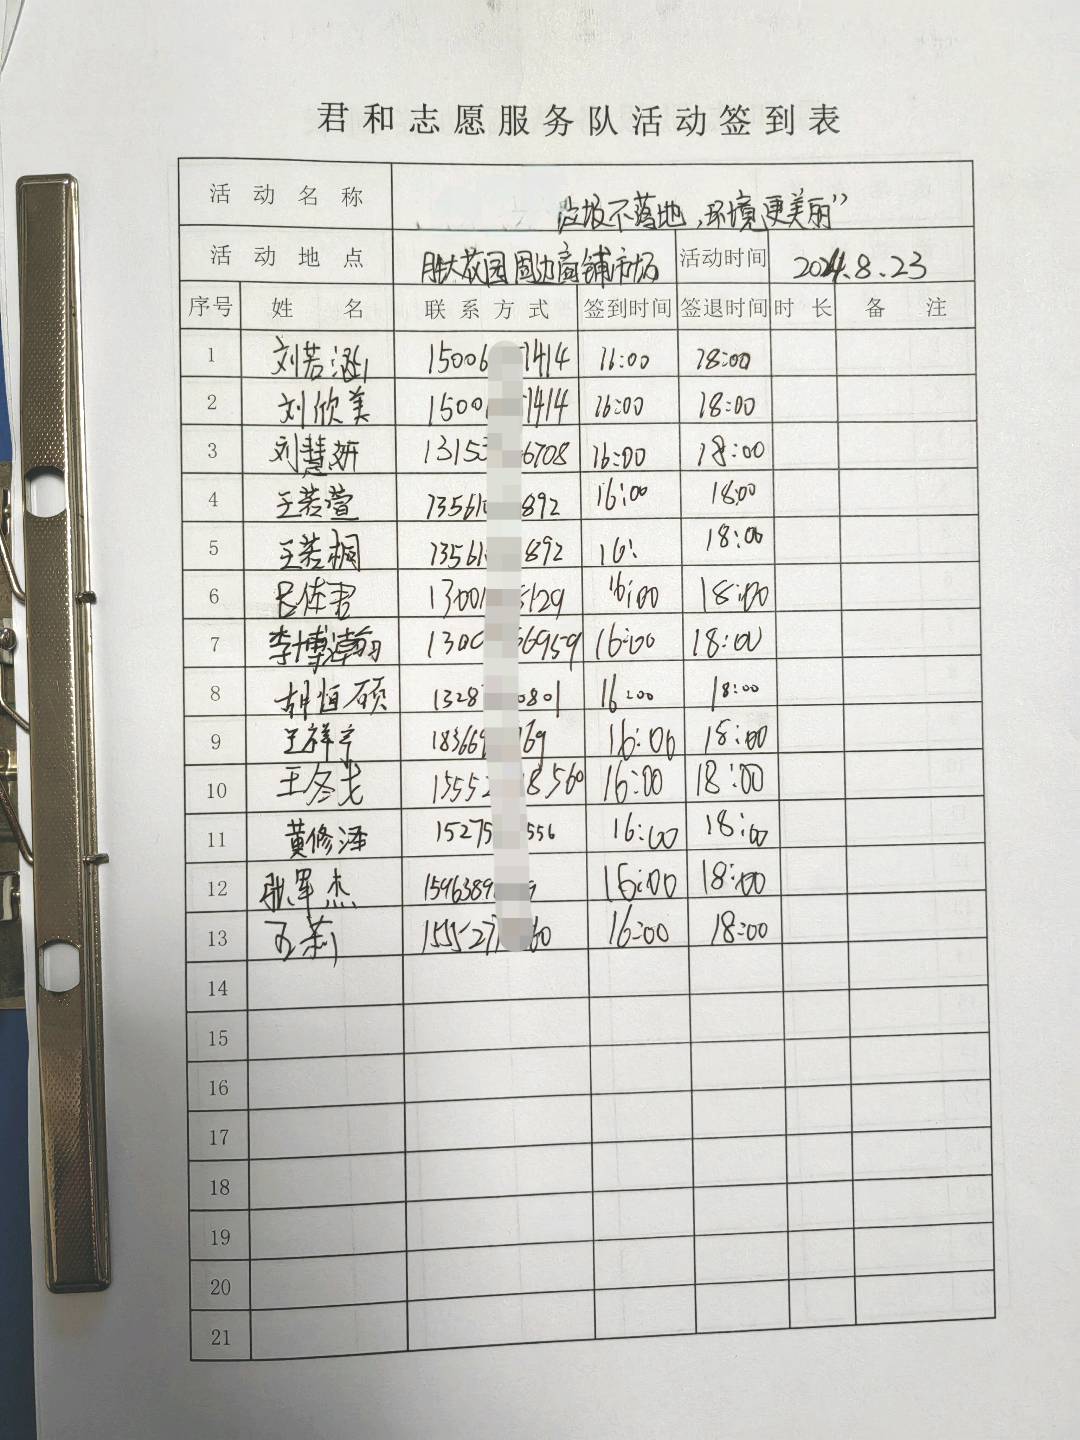 君和志愿服务队活动签到表
活动名称 垃圾不落地,环境更美丽”
活动地点 胜大花园周边商铺市场 活动时间 2024.8.23
序号 姓名 联系方式 签到时间 签退时间 时长 备注
1 刘若涵 15006 1414 16:00 18:00
2 刘欣美 1500 1414 16:00 18:00
3 刘慧妍 13153 6708 16:00 18:00
4 王若萱 13561 892 16:00 18:00
5 王若桐 13561 892 16: 18:00
6 1300 5129 16:00 18:00
7 李博瀚 1300 6959 16:00 18:00
8 胡恒硕 1328 0801 16:00 18:00
9 王祥宇 18366 169 16:00 18:00
10 王冬戈 1555 8560 16:00 18:00
11 黄修泽 15275 556 16:00 18:00
12 耿军杰 1596389 9 16:00 18:00
13 王莉 155527 60 16:00 18:00
14
15
16
17
18
19
20
21